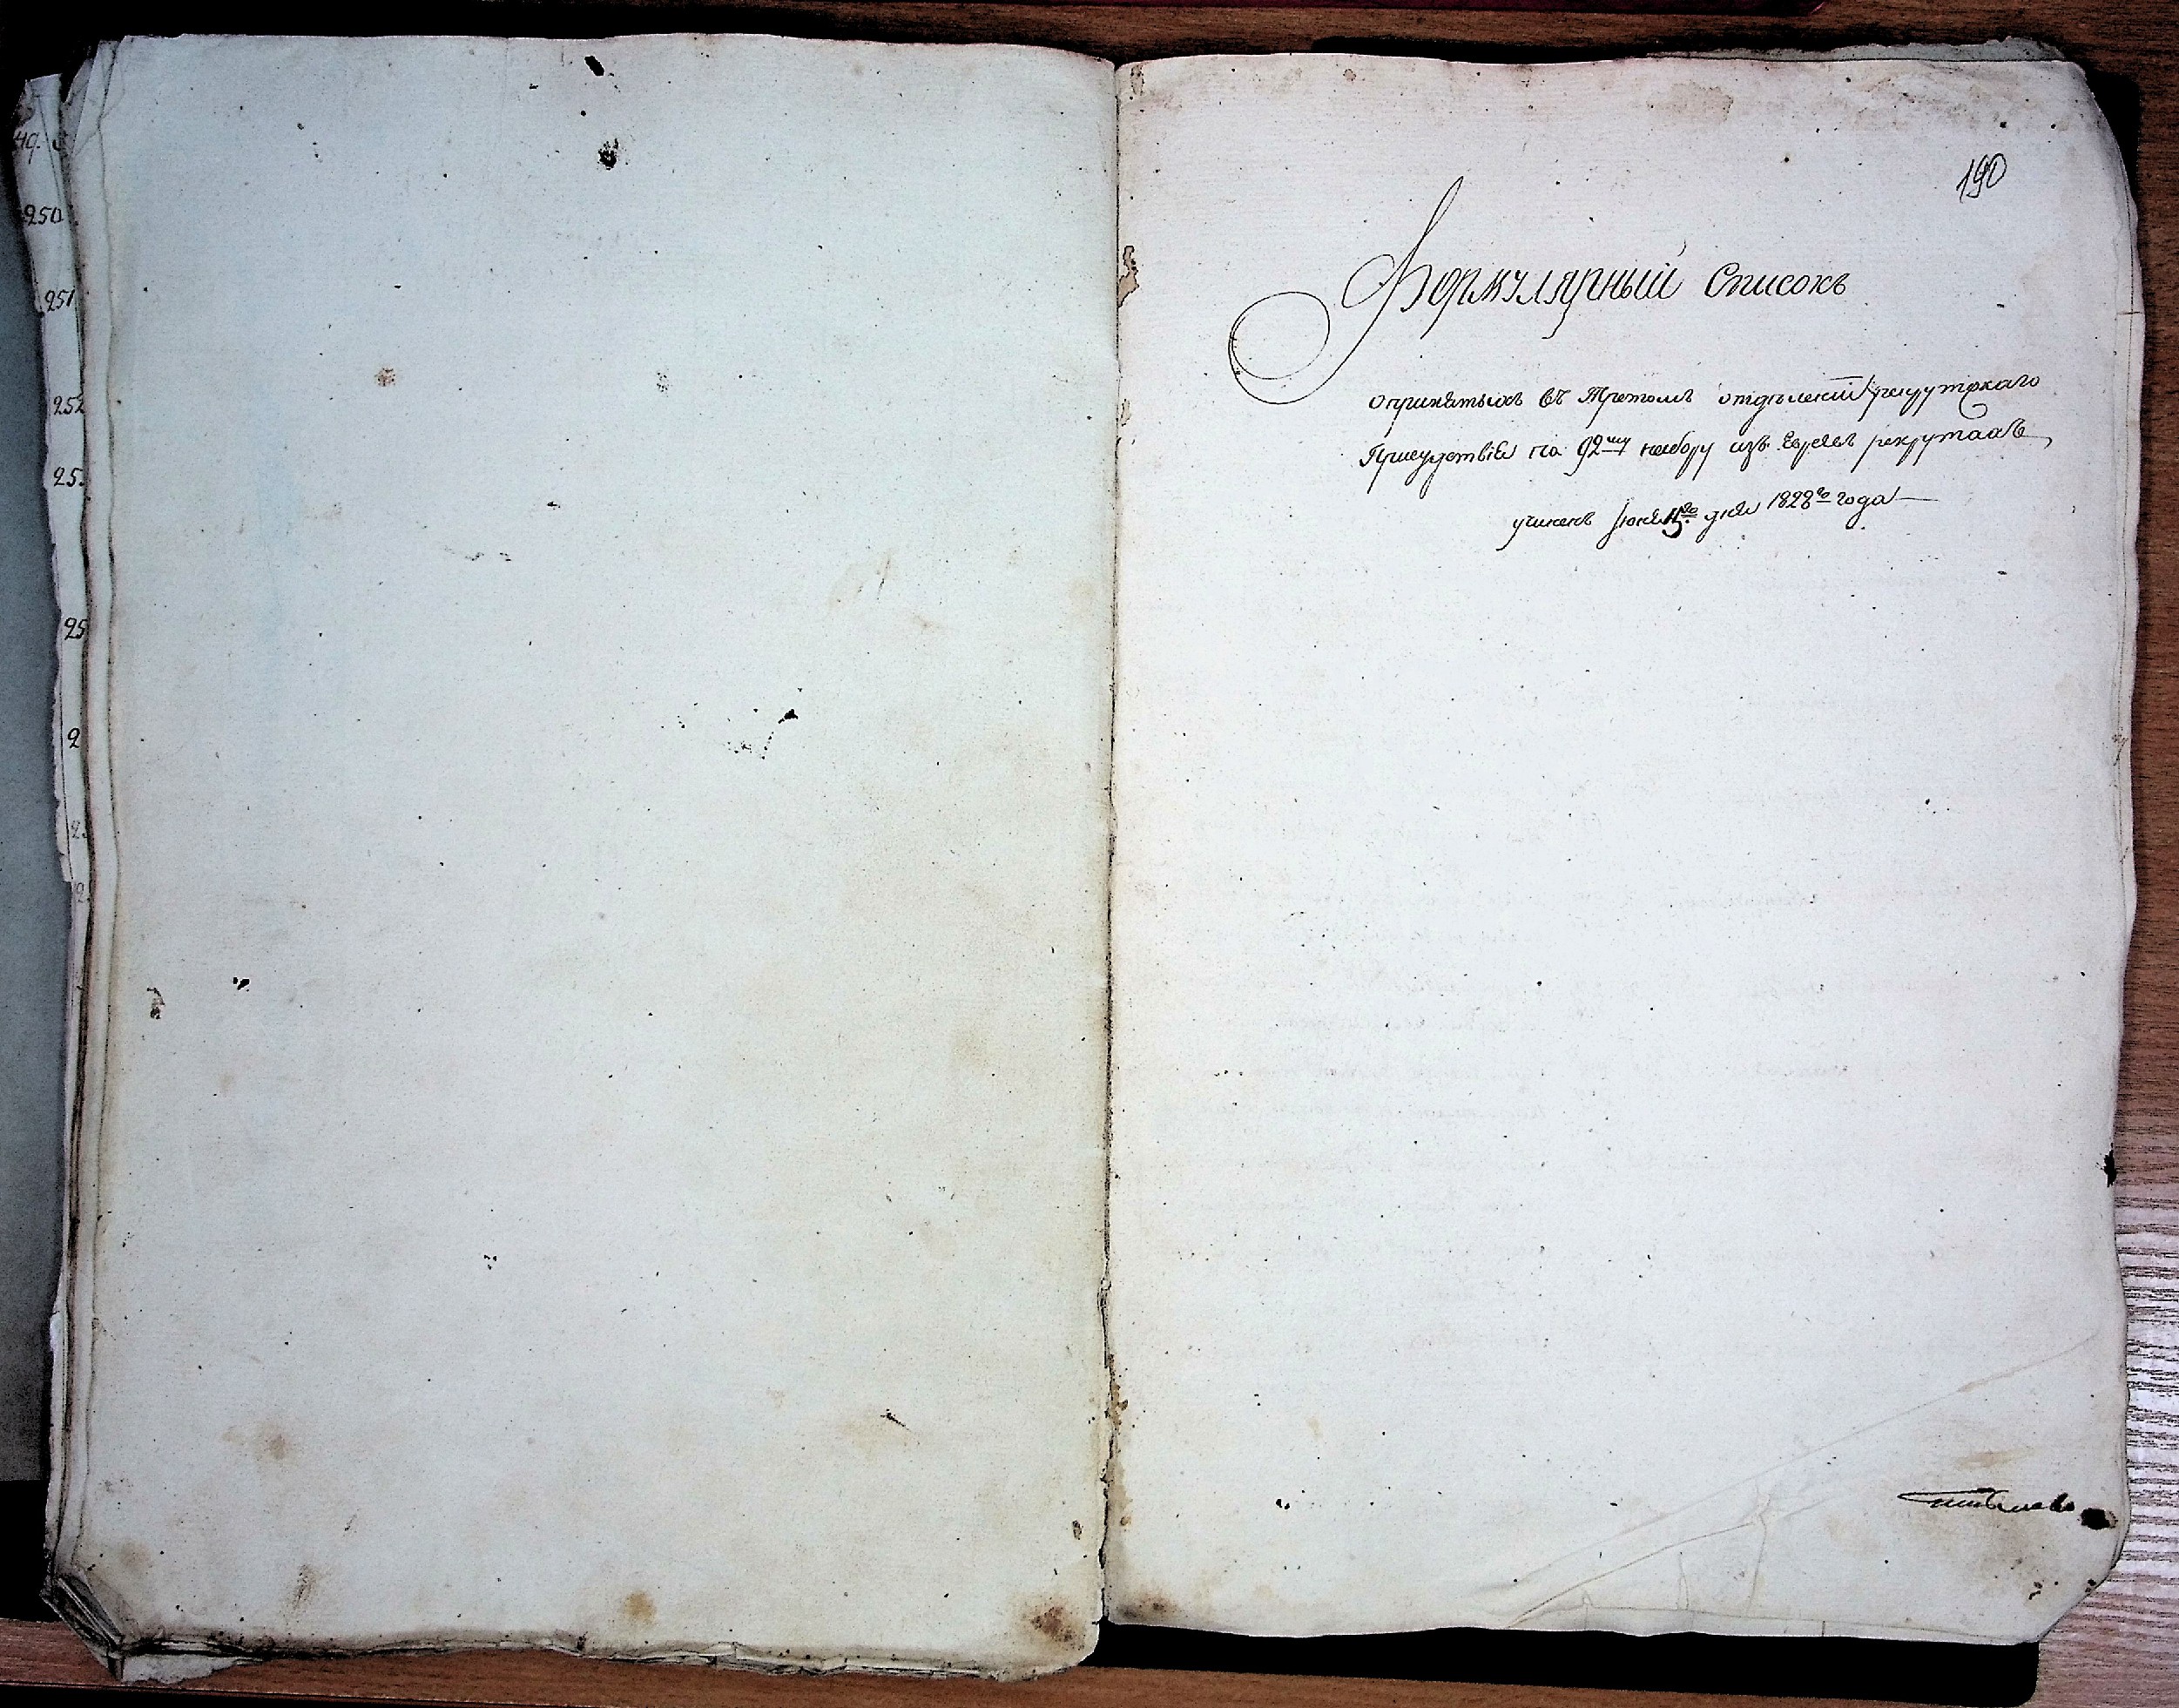 49.
250
251
252
25
25
2
2
2
190
Формулярный Списокъ
о принятыхъ въ Третьемъ отделении Рекрутскаго
Присудствия по 92му набору изъ Евреевъ рекрутахъ
учиненъ Июня 15го дня 1828го года